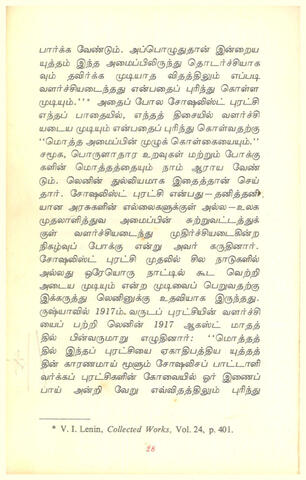 பார்க்க வேண்டும். அப்பொழுதுதான் இன்றைய
யுத்தம் இந்த அமைப்பிலிருந்து தொடர்ச்சியாக
வும் தவிர்க்க முடியாத விதத்திலும் எப்படி
வளர்ச்சியடைந்தது என்பதைப் புரிந்து கொள்ள
முடியும்.''* அதைப் போல சோஷலிஸ்ட் புரட்சி
எந்தப் பாதையில், எந்தத் திசையில் வளர்ச்சி
யடைய முடியும் என்பதைப் புரிந்து கொள்வதற்கு
''மொத்த அமைப்பின் முழுக் கொள்கையையும்,''
சமூக, பொருளாதார உறவுகள் மற்றும் போக்கு
களின் மொத்தத்தையும் நாம் ஆராய வேண்
டும். லெனின் துல்லியமாக இதைத்தான் செய்
தார். சோஷலிஸ்ட் புரட்சி என்பது—தனித்தனி
யான அரசுகளின் எல்லைகளுக்குள் அல்ல—உலக
முதலாளித்துவ அமைப்பின் சுற்றுவட்டத்துக்
குள் வளர்ச்சியடைந்து முதிர்ச்சியடைகின்ற
நிகழ்வுப் போக்கு என்று அவர் கருதினார்.
சோஷலிஸ்ட் புரட்சி முதலில் சில நாடுகளில்
அல்லது ஒரேயொரு நாட்டில் கூட வெற்றி
அடைய முடியும் என்ற முடிவைப் பெறுவதற்கு
இக்கருத்து லெனினுக்கு உதவியாக இருந்தது.
ருஷ்யாவில் 1917ம் வருடப் புரட்சியின் வளர்ச்சி
யைப் பற்றி லெனின் 1917 ஆகஸ்ட் மாதத்
தில் பின்வருமாறு எழுதினார்: ''மொத்தத்
தில் இந்தப் புரட்சியை ஏகாதிபத்திய யுத்தத்
தின் காரணமாய் மூளும் சோஷலிசப் பாட்டாளி
வர்க்கப் புரட்சிகளின் கோவையில் ஓர் இணைப்
பாய் அன்றி வேறு எவ்விதத்திலும் புரிந்து
* V. I. Lenin, Collected Works, Vol. 24, p. 401.
28